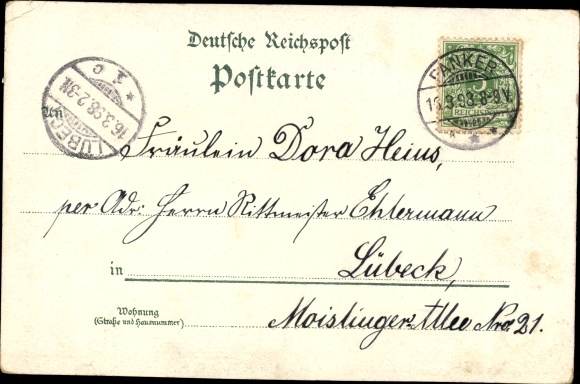 Deutsche Reichspost
Postkarte
PANKER
16.3.98.8-9V.
REICHSPOST
LÜBECK
16.3.98.2-3N
1 C
An
Fräulein Dora Heins,
per Adr: Herrn Rittmeister Ehlermann
in Lübeck,
Wohnung
(Straße und Hausnummer)
Moislinger Allee Nro 21.